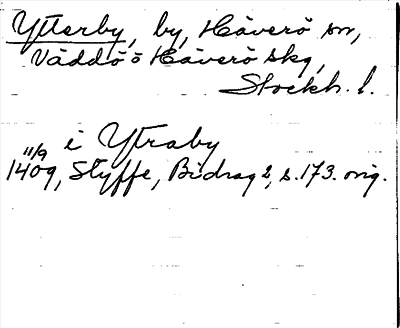 Ytterby, by, Häverö sn,
Väddö o Häverö skg,
Stockh. l.
i Ytraby
11/9
1409, Styffe, Bidrag 2, s. 173. orig.